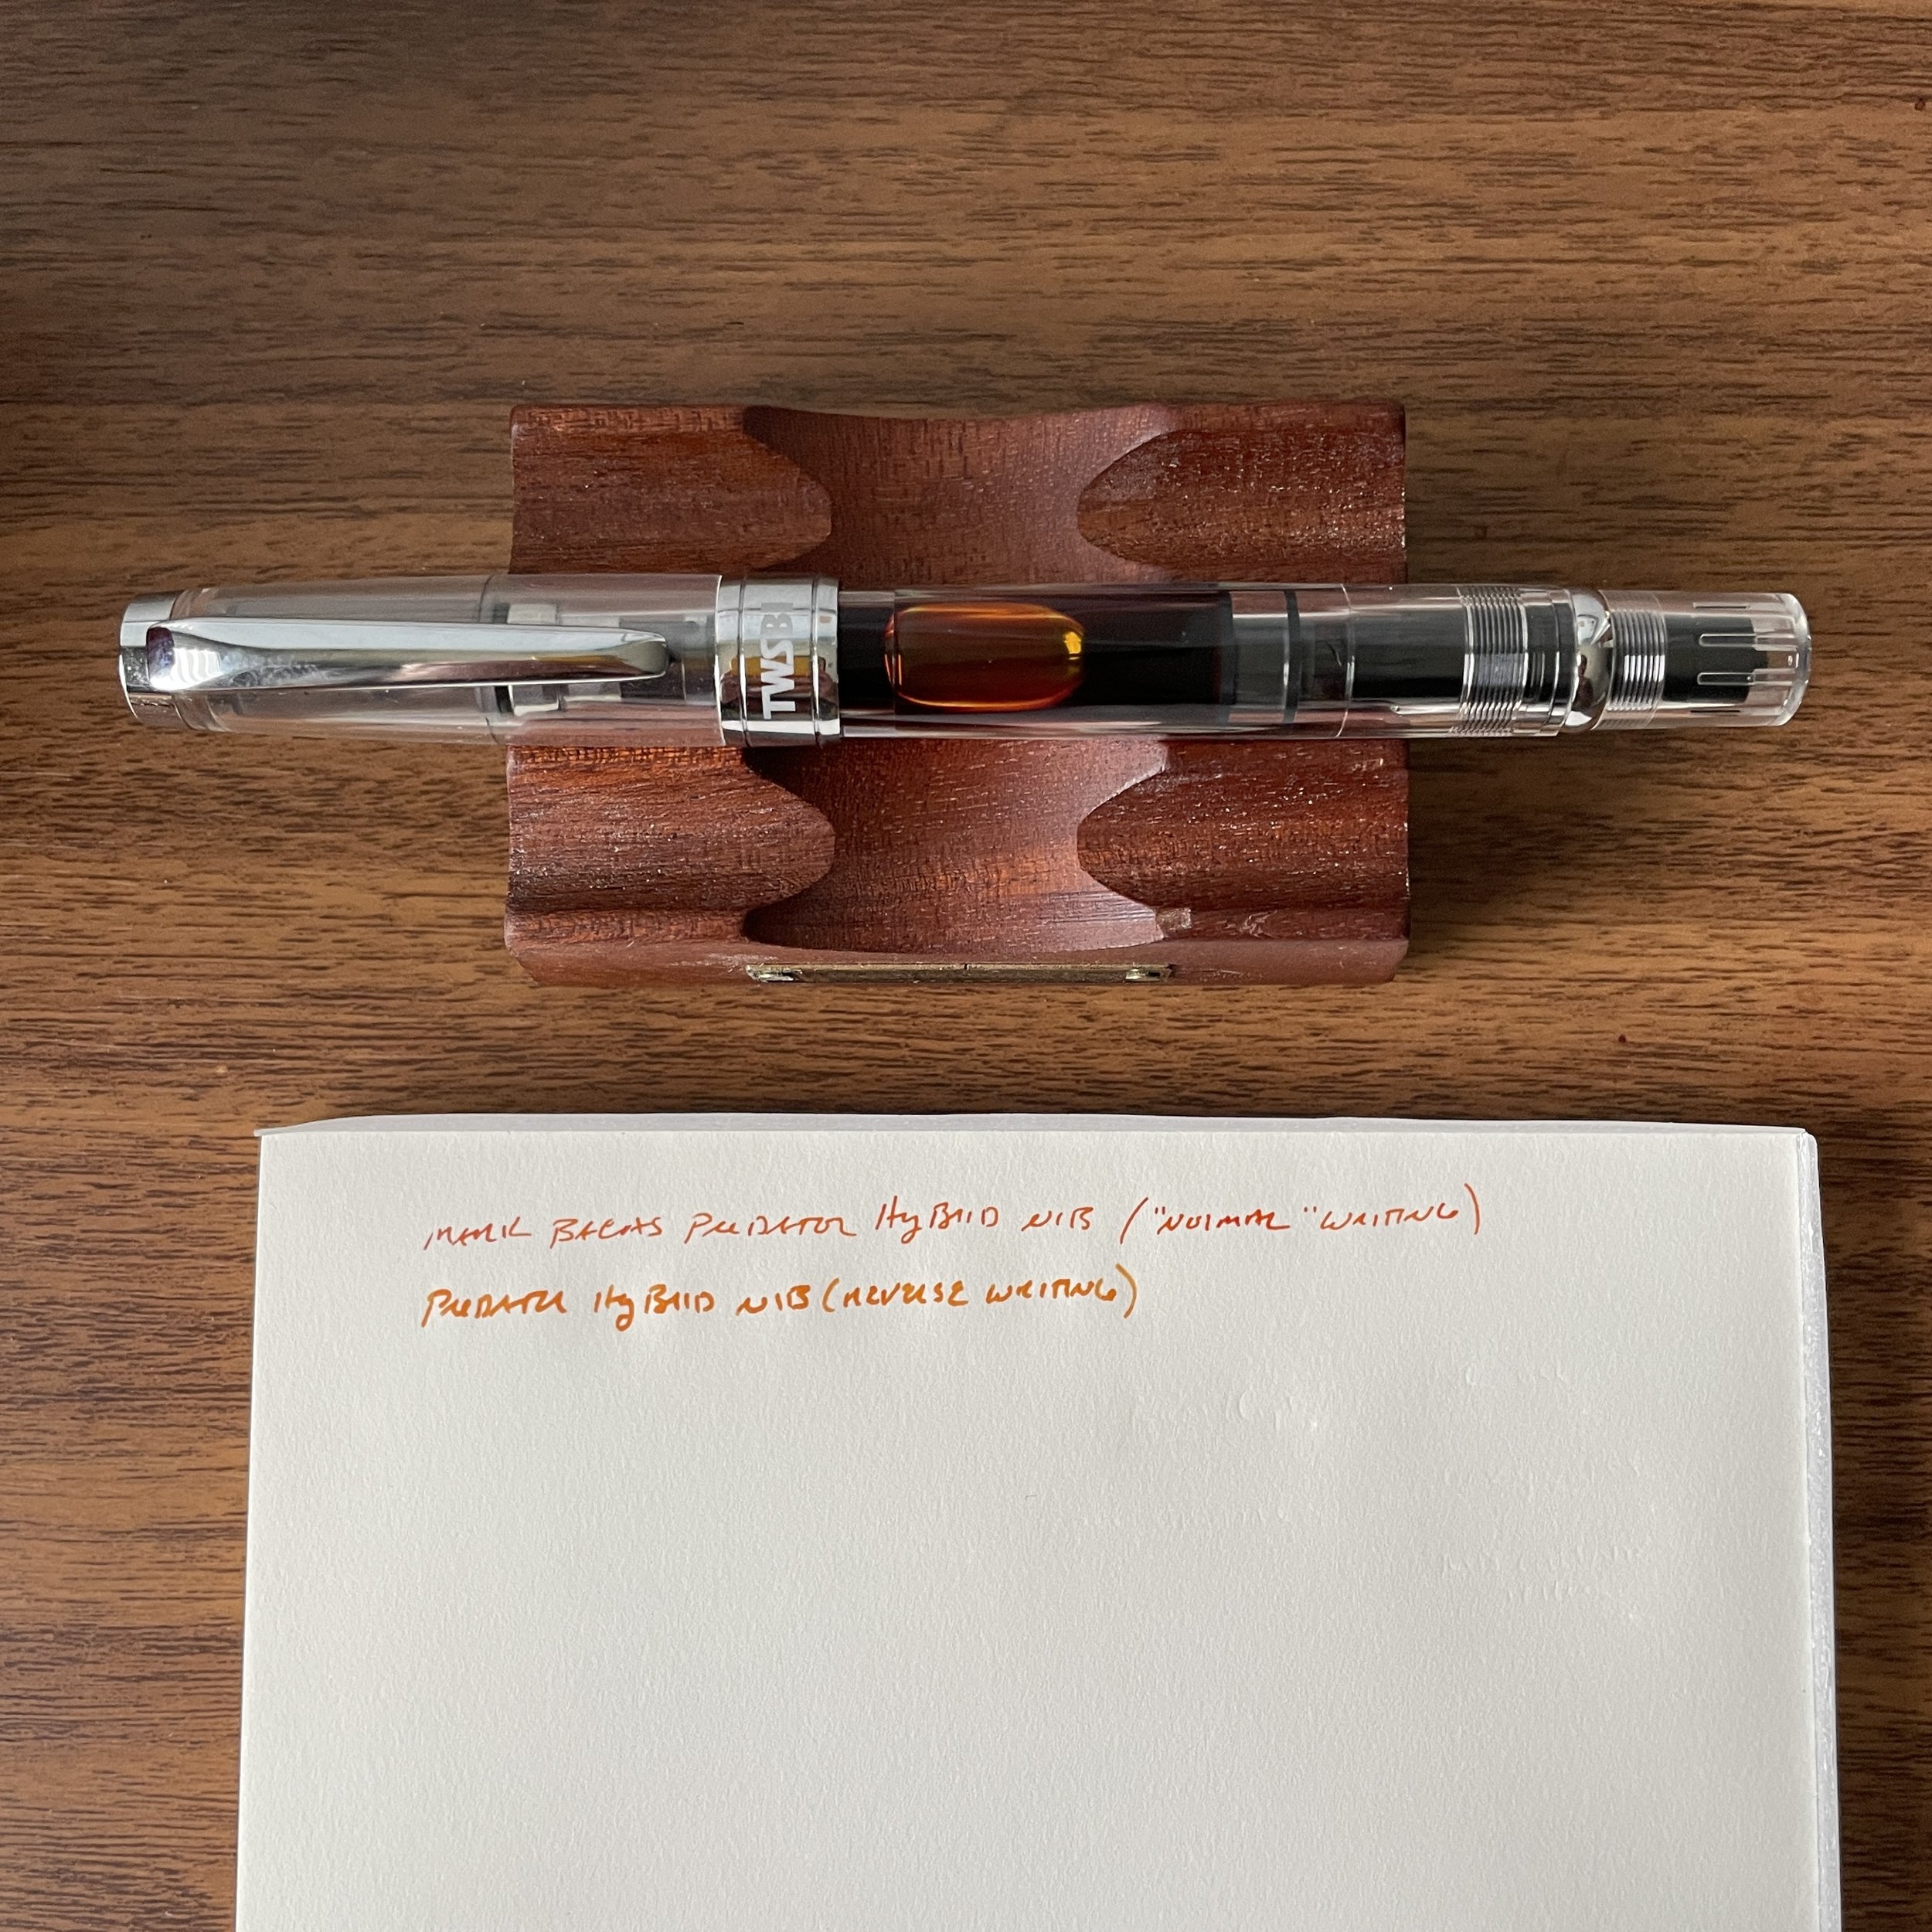 TWSBI
MARK BACAS PREDATOR HyBRID NIB ("NORMAL" WRITING)
PREDATOR HyBRID NIB (REVERSE WRITING)